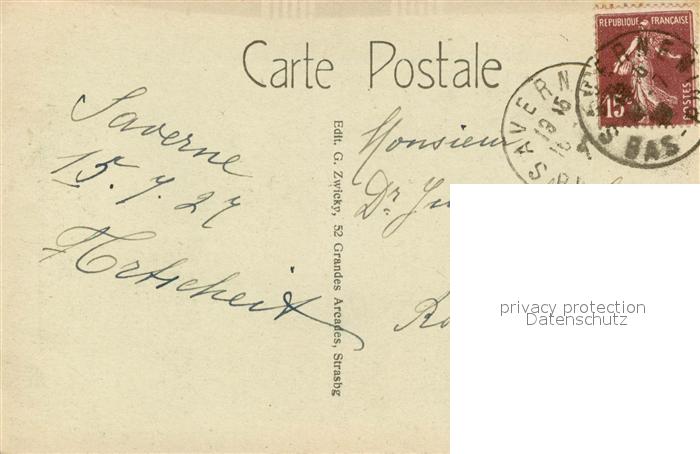 Carte Postale
Saverne
15.7.27
Edit. G. Zwicky, 52 Grandes Arcades, Strasbg
Monsieur
Dr.
REPUBLIQUE FRANÇAISE
15
POSTES
SAVERNE
BAS-
privacy protection
Datenschutz